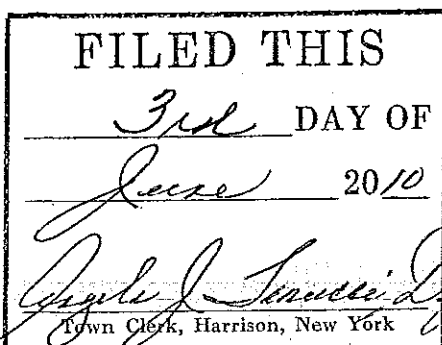 FILED THIS
3rd DAY OF
June 2010
J.
Town Clerk, Harrison, New York